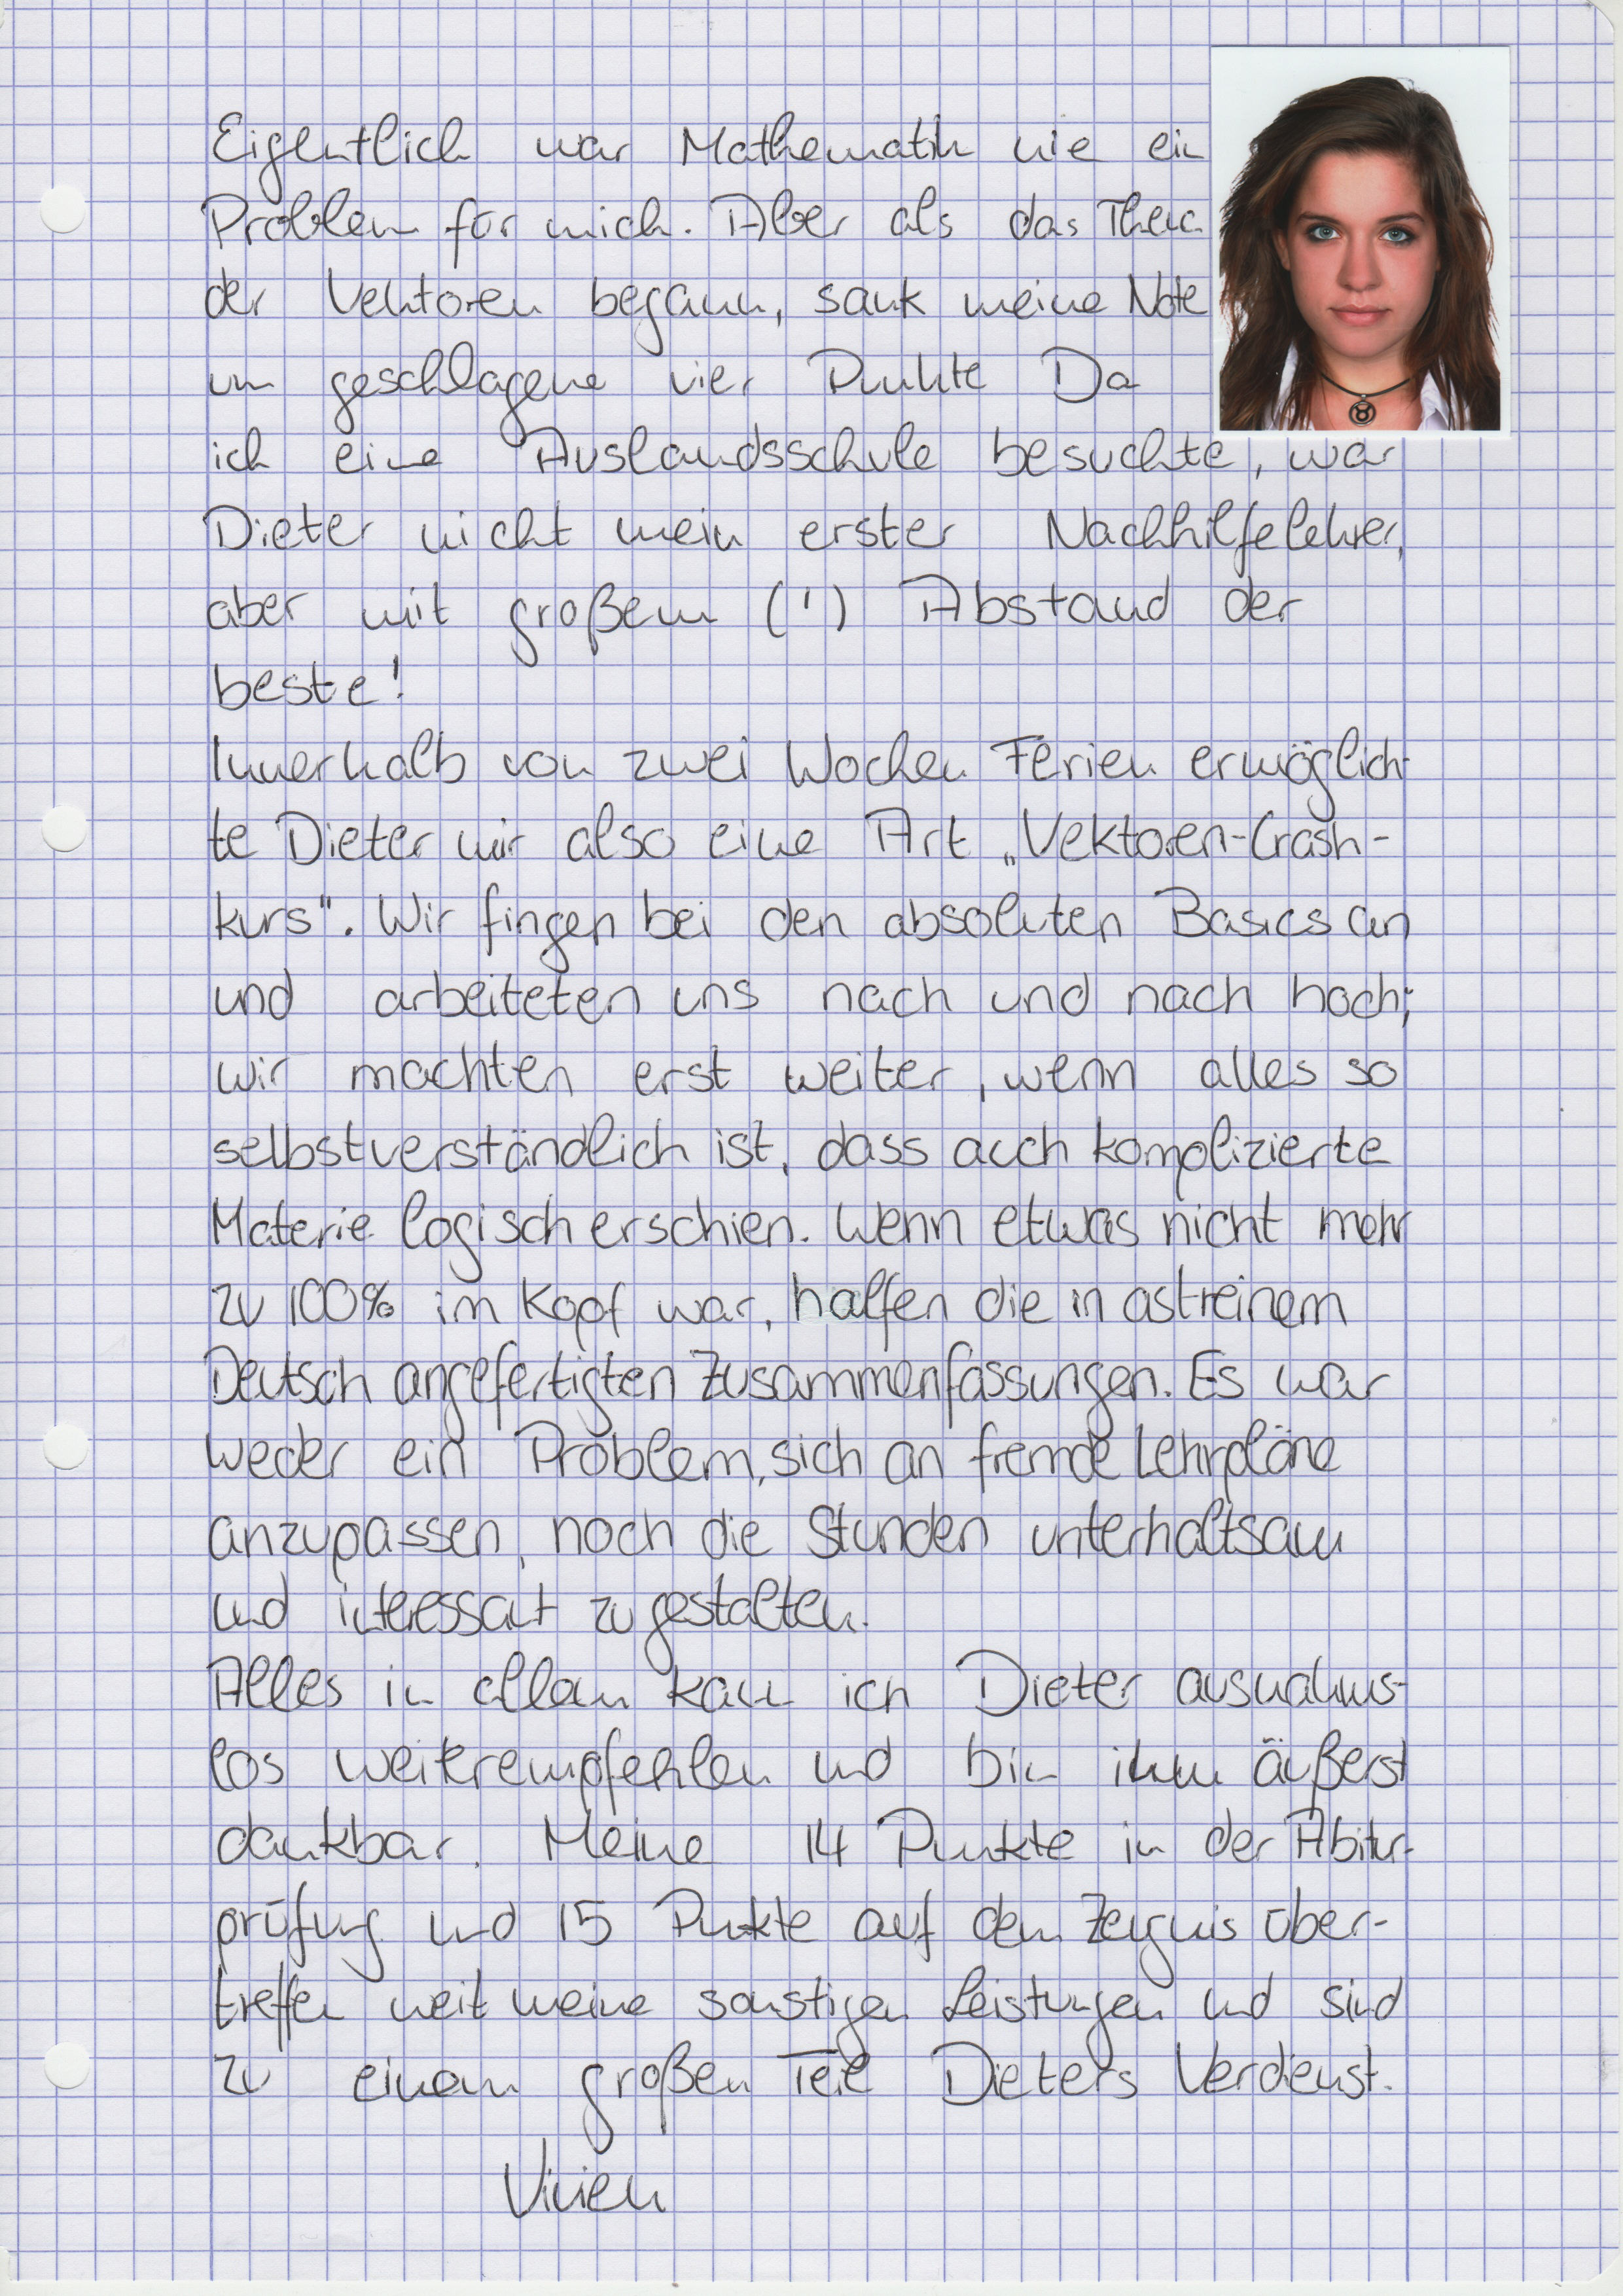 Eigentlich war Mathematik nie ein
Problem für mich. Aber als das Thema
der Vektoren begann, sank meine Note
um geschlagene vier Punkte Da
ich eine Auslandsschule besuchte, war
Dieter nicht mein erster Nachhilfelehrer,
aber mit großem (!) Abstand der
beste!
Innerhalb von zwei Wochen Ferien ermöglich-
te Dieter mir also eine Art „Vektoren-Crash-
kurs". Wir fingen bei den absoluten Basics an
und arbeiteten uns nach und nach hoch;
wir machten erst weiter, wenn alles so
selbstverständlich ist, dass auch komplizierte
Materie logisch erschien. Wenn etwas nicht mehr
zu 100% im Kopf war, halfen die in astreinem
Deutsch angefertigten Zusammenfassungen. Es war
weder ein Problem, sich an fremde Lehrpläne
anzupassen, noch die Stunden unterhaltsam
und interessant zu gestalten.
Alles in allem kann ich Dieter ausnahms-
los weiterempfehlen und bin ihm äußerst
dankbar. Meine 14 Punkte in der Abitur-
prüfung und 15 Punkte auf dem Zeugnis über-
treffen weit meine sonstigen Leistungen und sind
zu einem großen Teil Dieters Verdienst.
Vivien